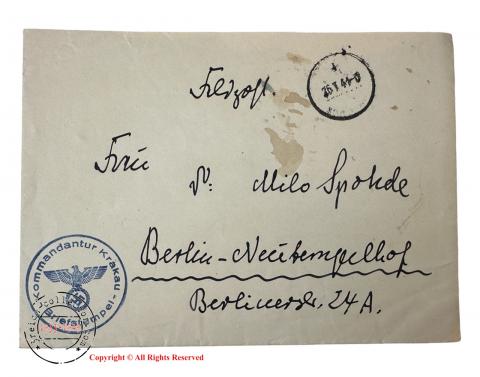 Feldpost.
25.1.44-0
Frau
Milo Spohde
Berlin-Neutempelhof
Berlinerstr. 24A.
Kommandantur Krakau
Briefstempel
Copyright © All Rights Reserved